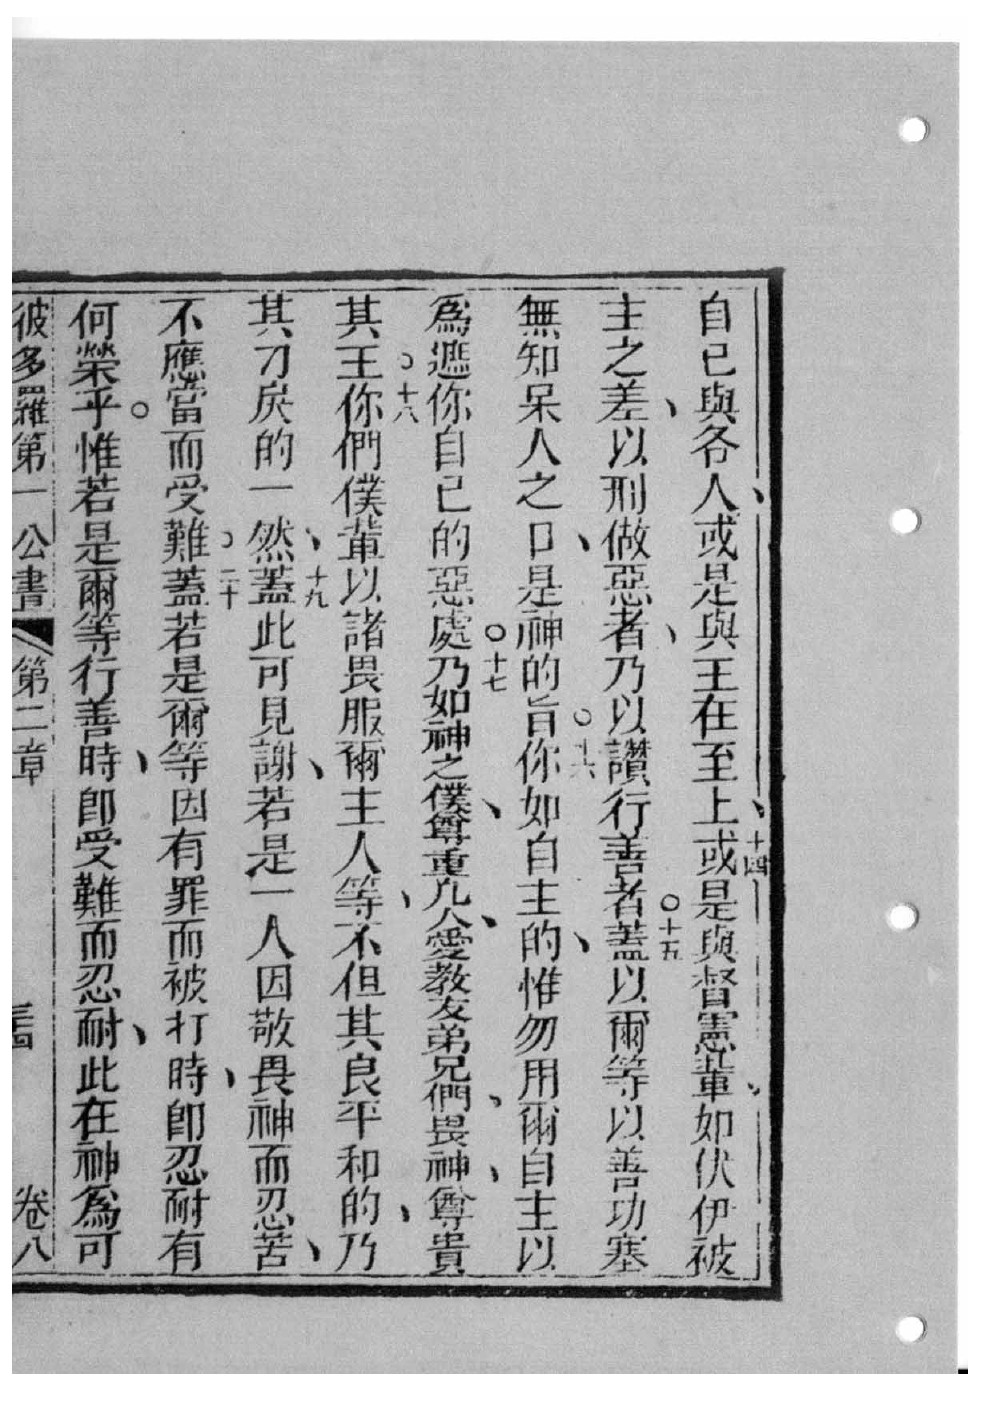 自己與各人、或是與王在至上、十四或是與督憲輩、如伏伊被
主之差、以刑做惡者、乃以讚行善者。十五蓋以爾等以善功塞
無知呆人之口、是神的旨。十六你如自主的、惟勿用爾自主以
為遮你自己的惡處。十七乃如神之僕、尊重凡人、愛教友弟兄們、畏神、尊貴
其王。十八你們僕輩以諸畏服爾主人等、不但其良平和的、乃
其刁戾的一然、十九蓋此可見謝、若是一人因敬畏神而忍苦、
不應當而受難。二十蓋若是爾等因有罪而被打時、即忍耐有
何榮乎。惟若是爾等行善時、即受難而忍耐、此在神為可
彼多羅第一公書 第二章 卷八